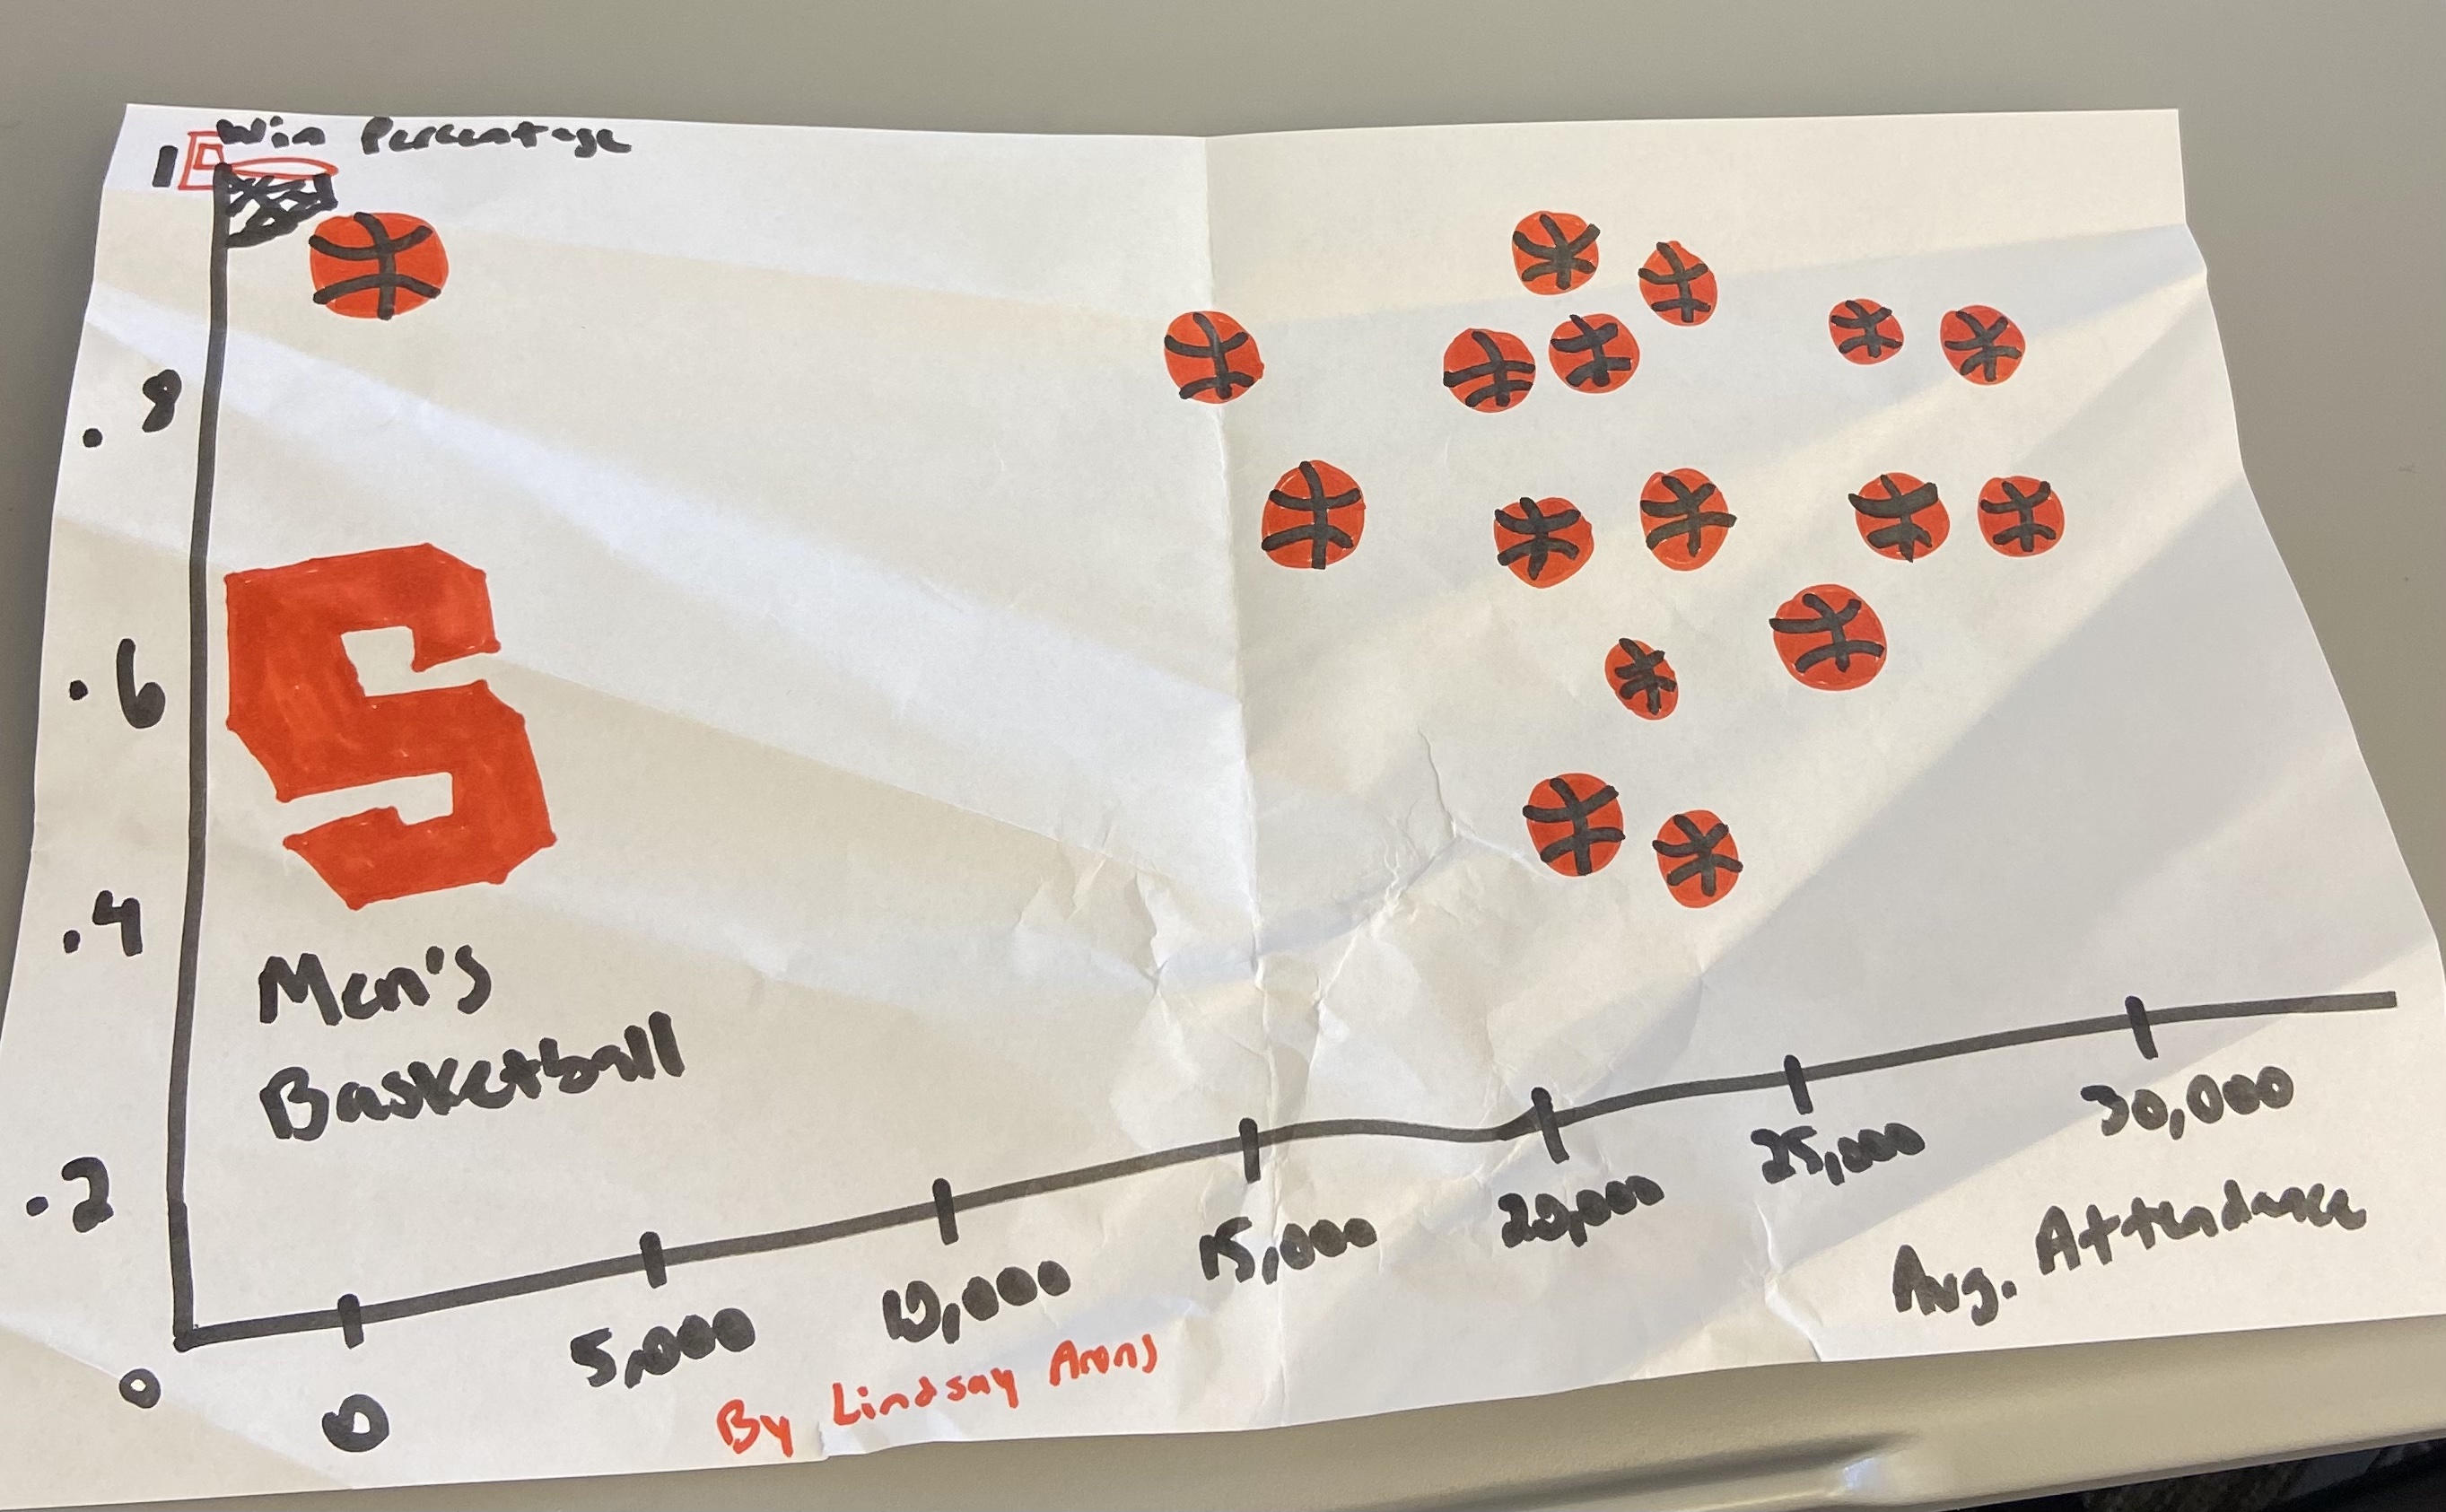 Win Percentage
1
.8
.6
.4
.2
0
S
Men's
Basketball
0
5,000
10,000
15,000
20,000
25,000
30,000
Avg. Attendance
By Lindsay Arons